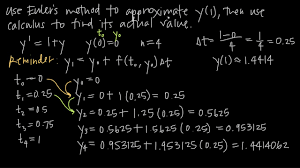 Use Euler's method to approximate y(1), then use
calculus to find its actual value.
t₀ y₀
y' = 1+y y(0)=0 n=4 Δt = 1-0/4 = 1/4 = 0.25
Reminder: y₁ = y₀ + f(t₀, y₀)Δt y(1) ≈ 1.4414
t₀ = 0 y₀ = 0
t₁ = 0.25 y₁ = 0 + 1(0.25) = 0.25
t₂ = 0.5 y₂ = 0.25 + 1.25(0.25) = 0.5625
t₃ = 0.75 y₃ = 0.5625 + 1.5625(0.25) = 0.953125
t₄ = 1 y₄ = 0.953125 + 1.953125(0.25) = 1.4414062